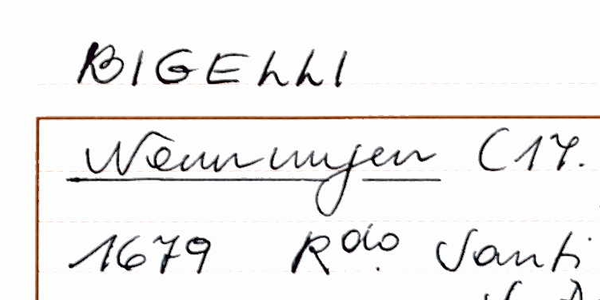 BIGELLI
Nennungen (17.
1679 Rdo Santi